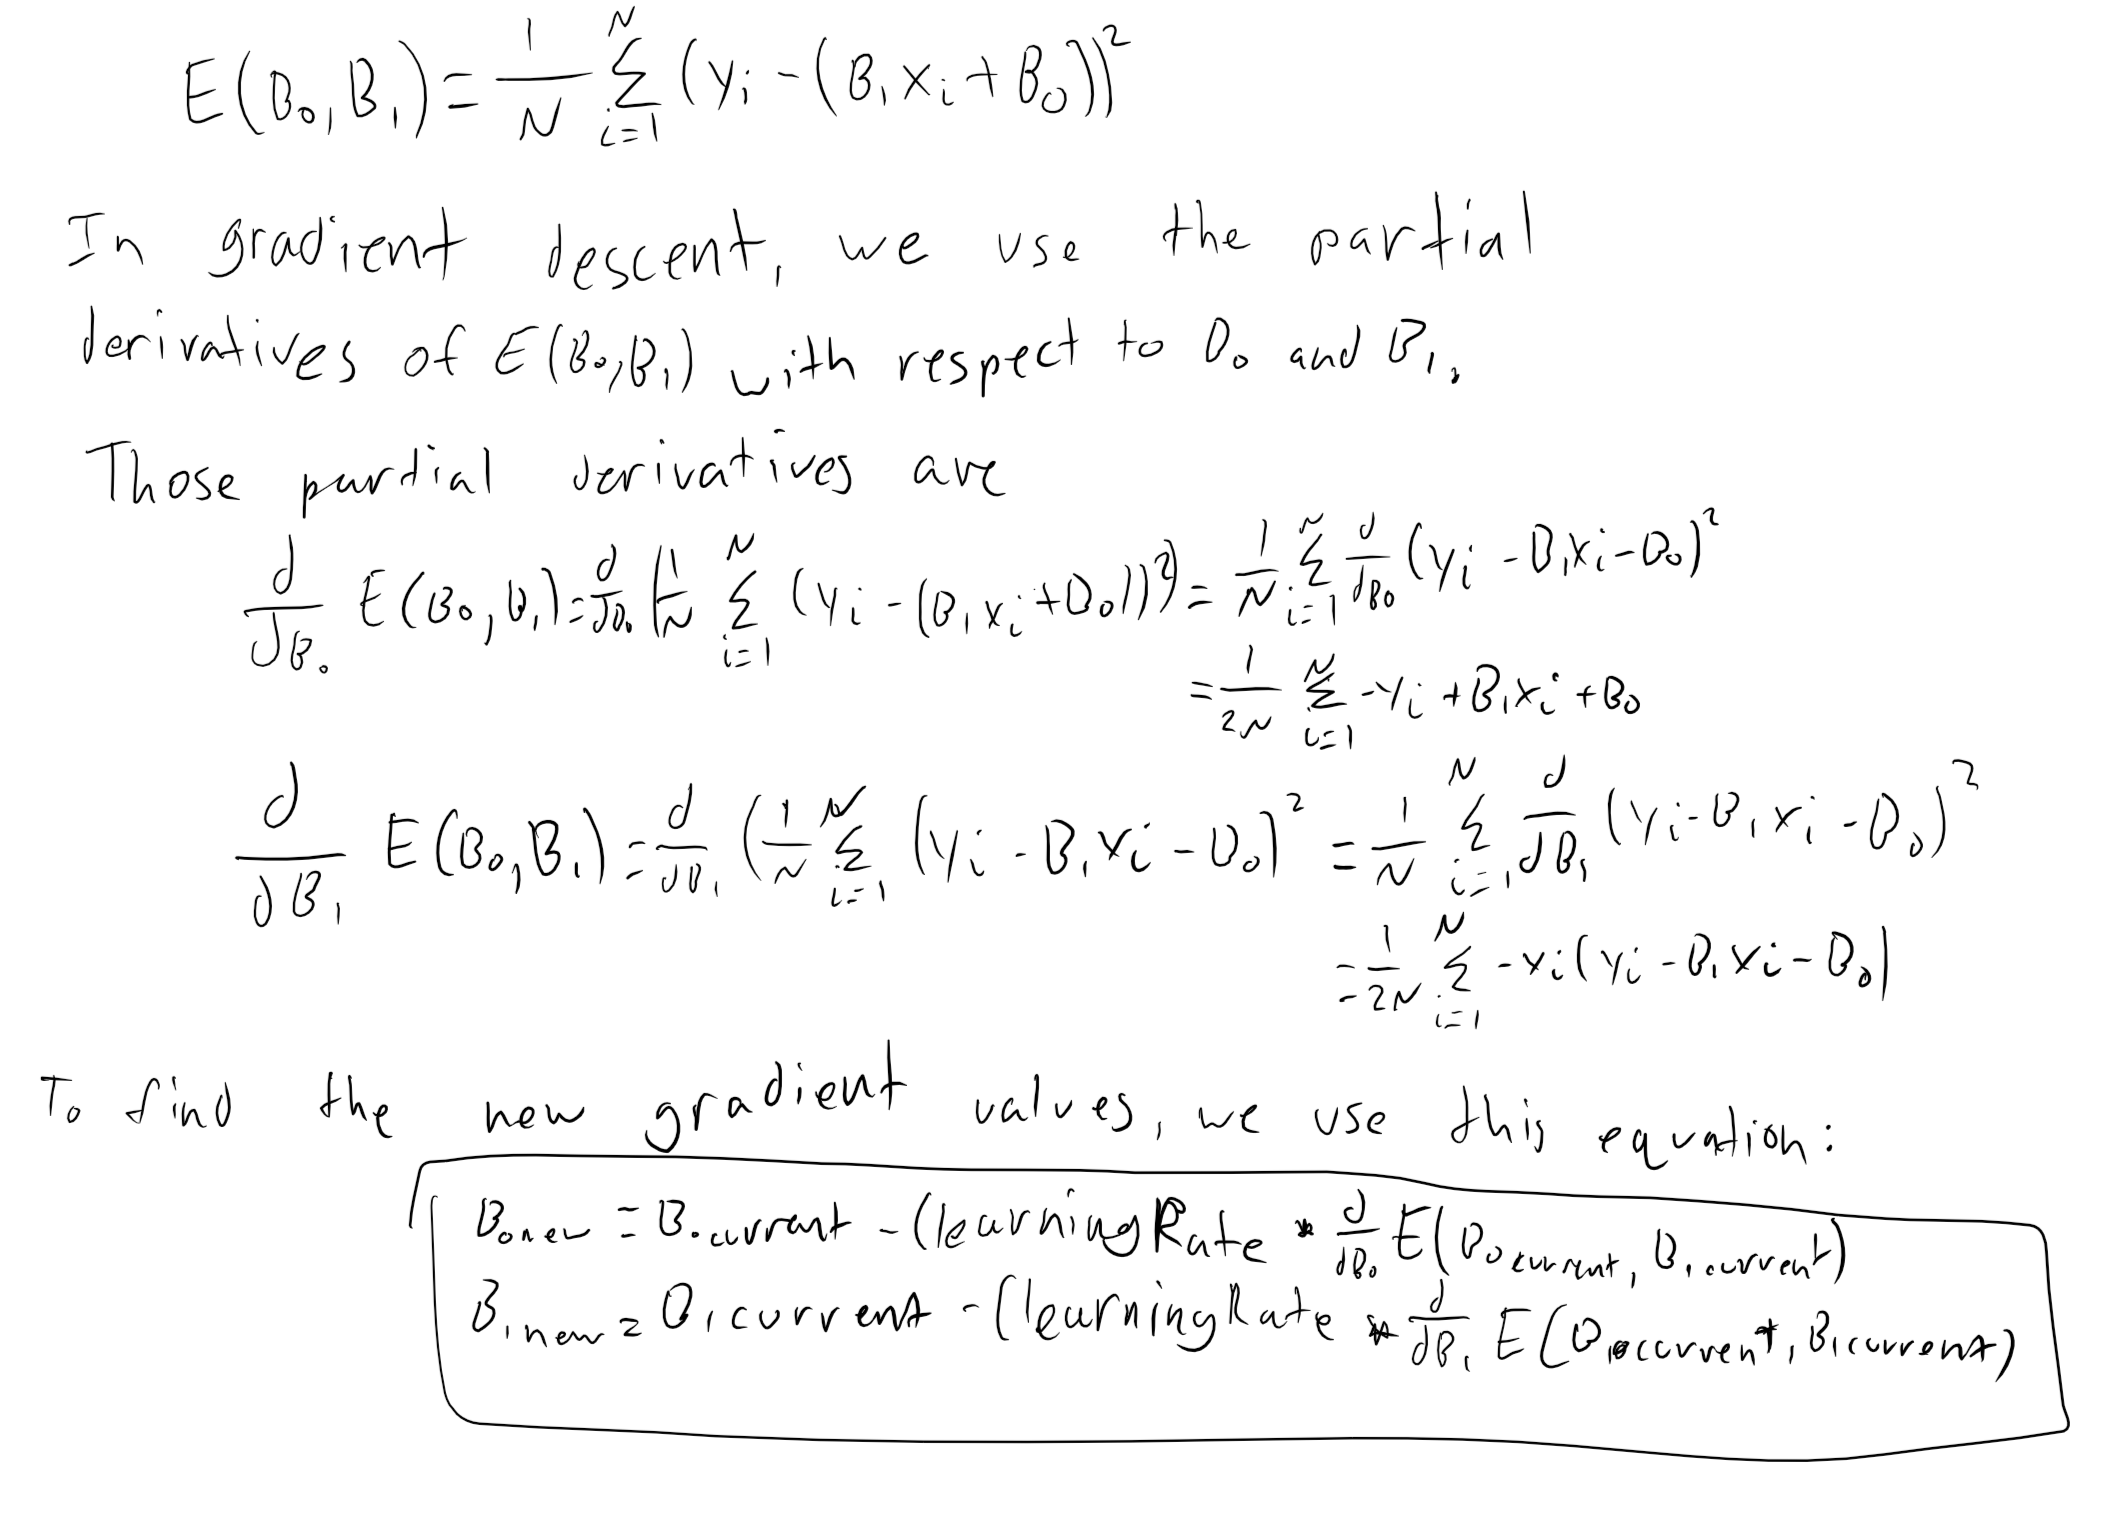 E(B₀,B₁) = 1/N Σ_{i=1}^{N} (yᵢ - (B₁xᵢ + B₀))²
In gradient descent, we use the partial
derivatives of E(B₀,B₁) with respect to B₀ and B₁.
Those partial derivatives are
d/dB₀ E(B₀,B₁) = d/dB₀ (1/N Σ_{i=1}^{N} (yᵢ - (B₁xᵢ + B₀))²) = 1/N Σ_{i=1}^{N} d/dB₀ (yᵢ - B₁xᵢ - B₀)²
= 1/2N Σ_{i=1}^{N} -yᵢ + B₁xᵢ + B₀
d/dB₁ E(B₀,B₁) = d/dB₁ (1/N Σ_{i=1}^{N} (yᵢ - B₁xᵢ - B₀)² = 1/N Σ_{i=1}^{N} d/dB₁ (yᵢ - B₁xᵢ - B₀)²
= 1/2N Σ_{i=1}^{N} -xᵢ(yᵢ - B₁xᵢ - B₀)
To find the new gradient values, we use this equation:
B₀new = B₀current - (learningRate * d/dB₀ E(B₀current, B₁current)
B₁new = B₁current - (learningRate * d/dB₁ E(B₀current, B₁current)